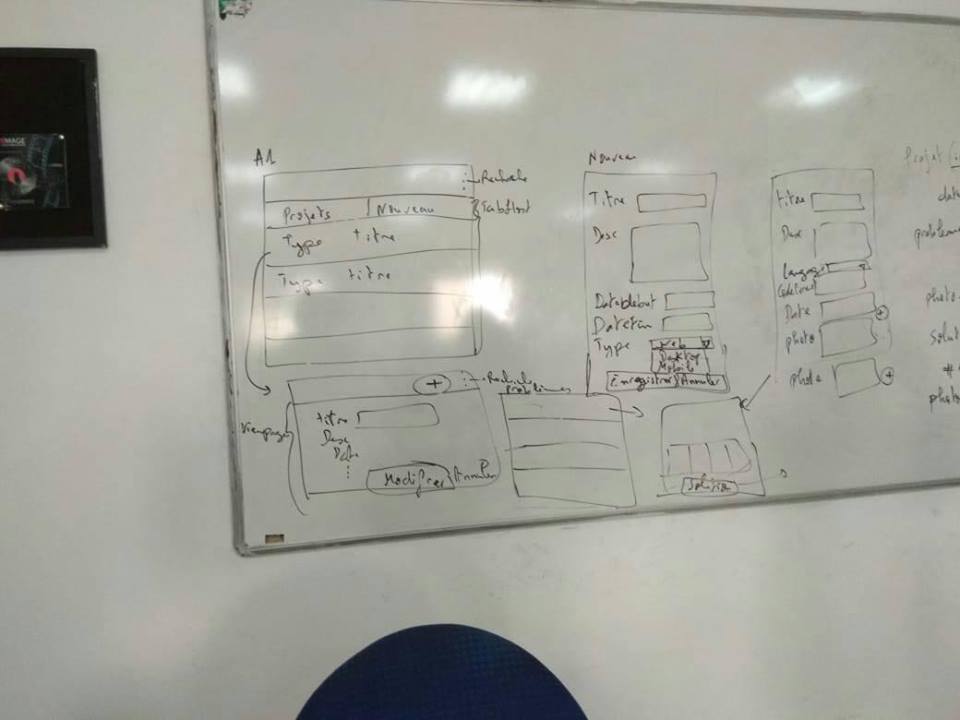 A1
Recherche
Projets Nouveau
TabHost
Type titre
Type titre
+
Recherche
problèmes
Viewpager
titre
Desc
Date
Modifier Annuler
Nouveau
Titre
Desc
Date debut
Date fin
Type Web
Desktop
Mobile
Enregistrer Annuler
Solution
titre
Desc
Language
Date +
photo
photo +
Projet
date
problème
photo
solut
#
photo